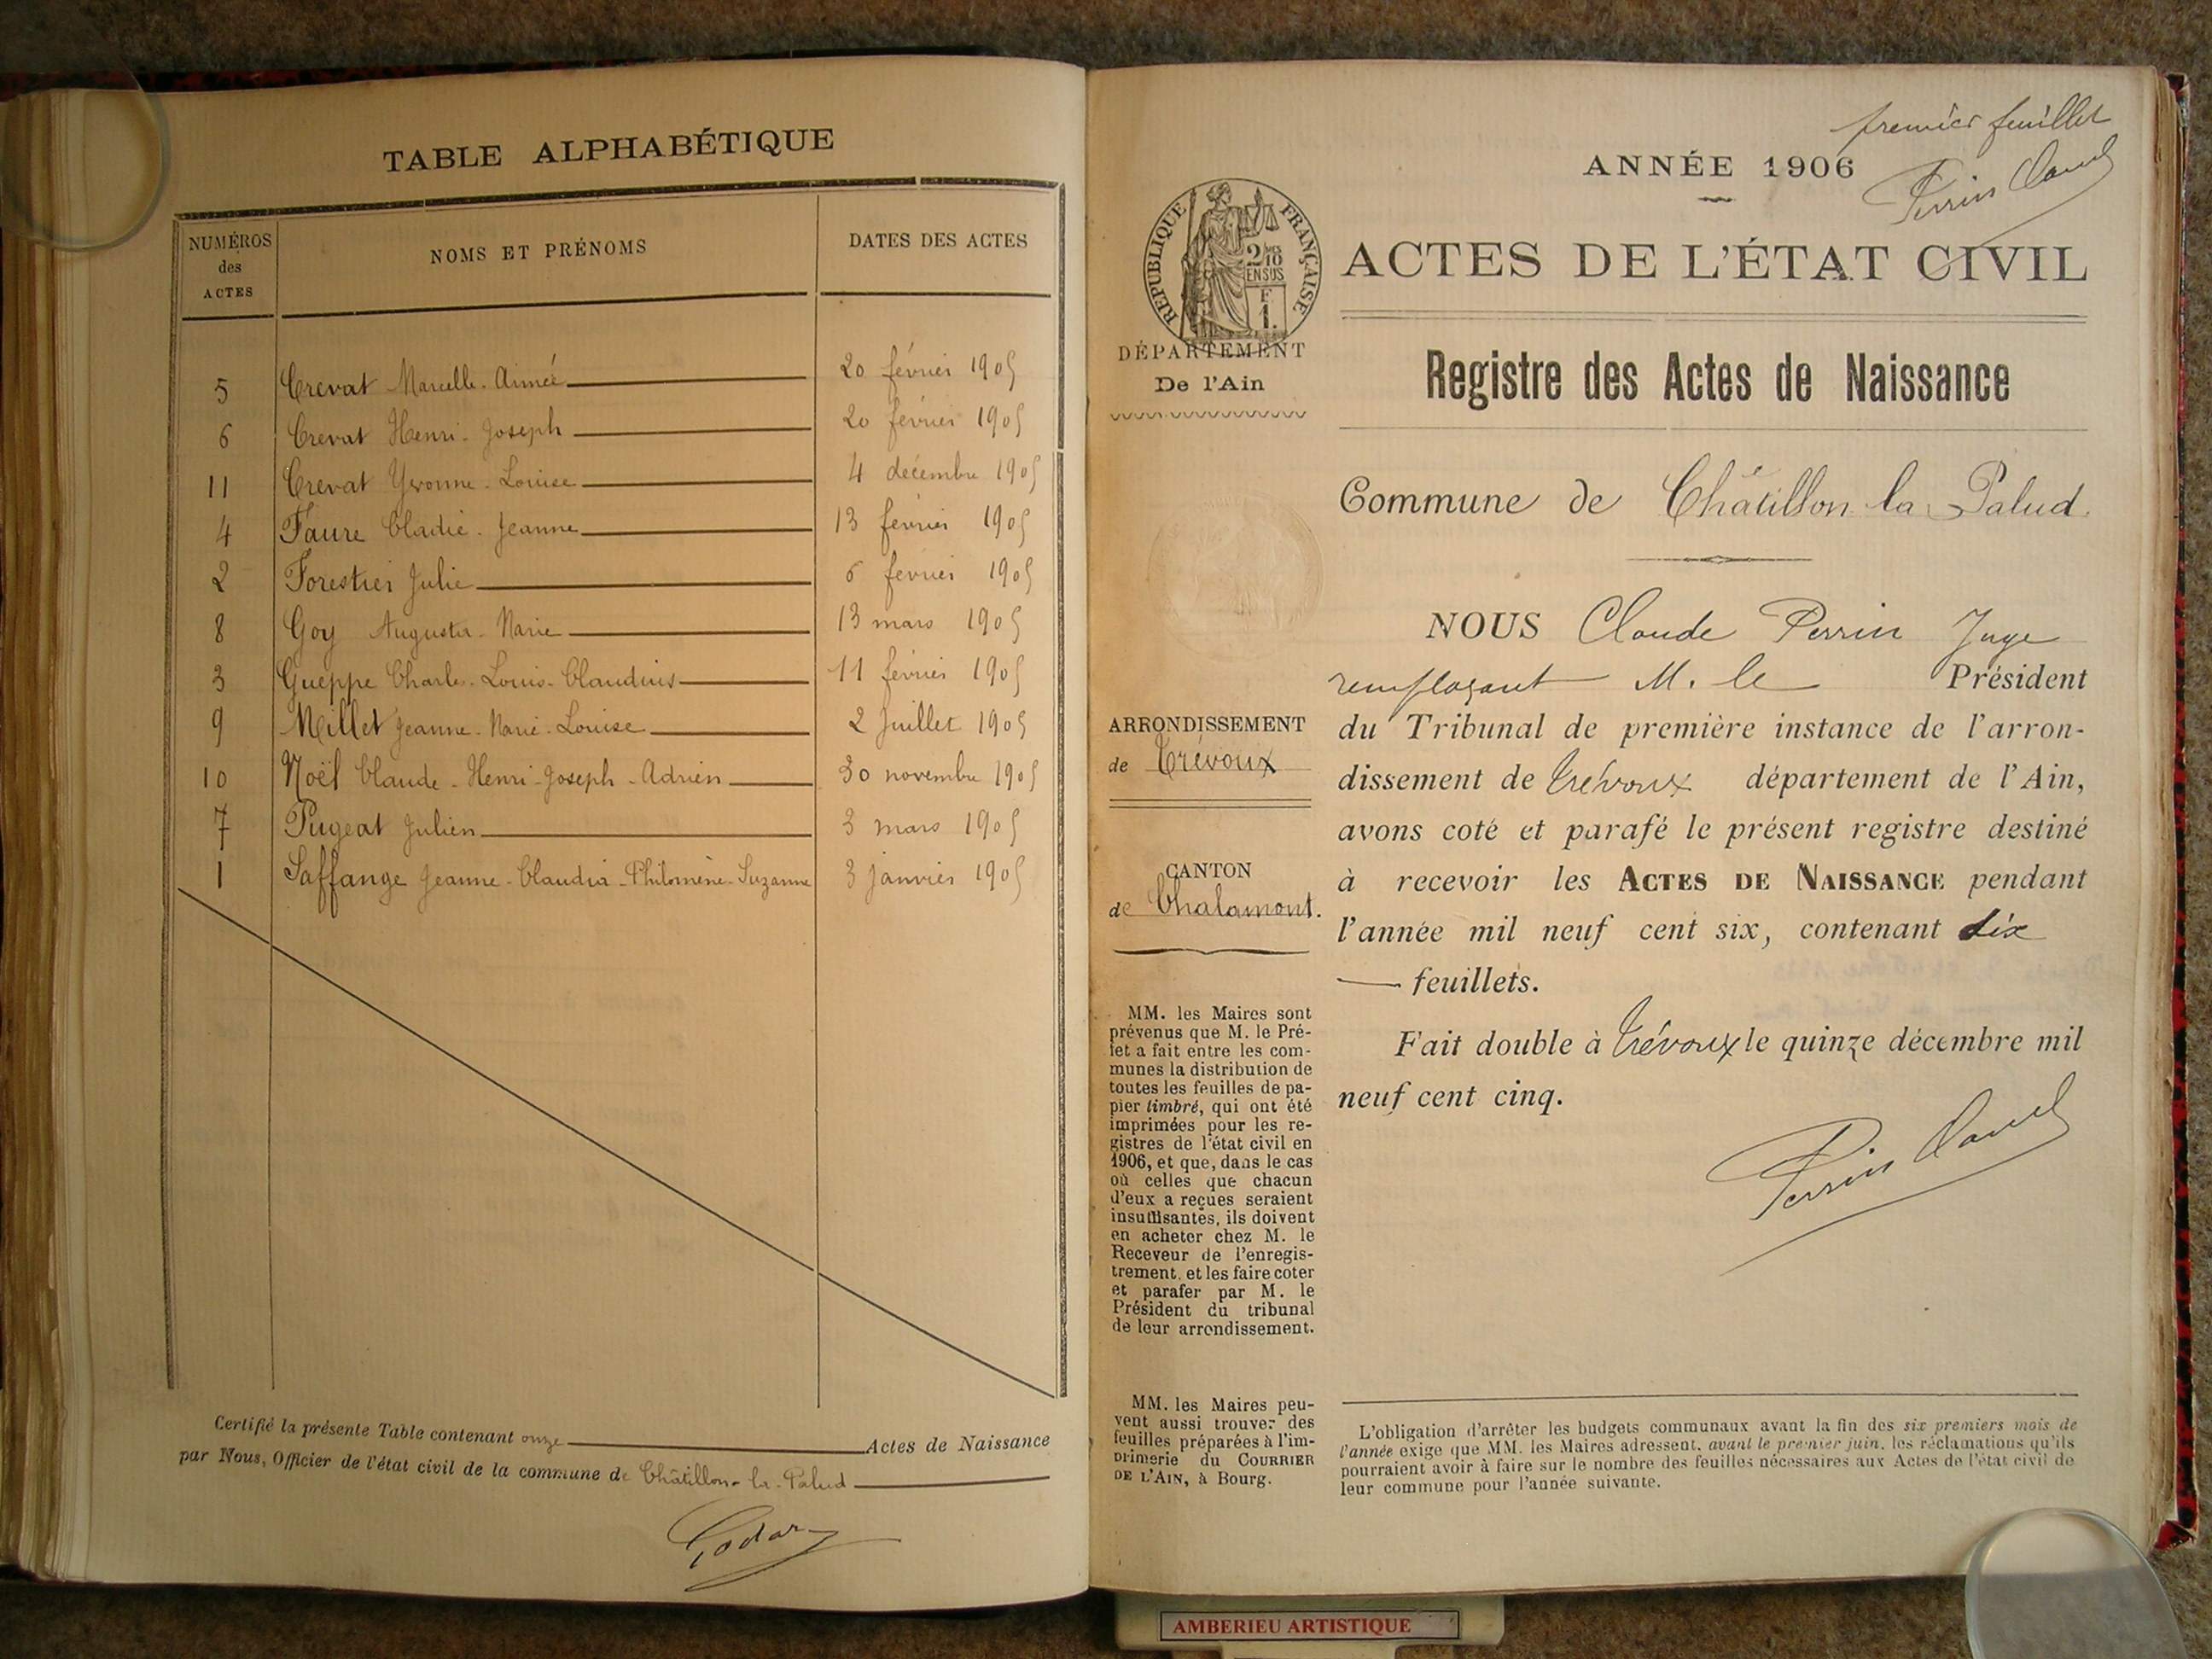 TABLE ALPHABÉTIQUE
NUMÉROS des ACTES
NOMS ET PRÉNOMS
DATES DES ACTES
5 Crevat Marcelle-Aimée 20 février 1905
6 Crevat Henri-Joseph 20 février 1905
11 Crevat Yvonne-Louise 4 décembre 1905
4 Faure Cladie-Jeanne 13 février 1905
2 Forestier Julie 6 février 1905
8 Goy Augusta-Marie 13 mars 1905
3 Gueppe Charles-Louis-Claudius 11 février 1905
9 Millet Jeanne-Marie-Louise 2 Juillet 1905
10 Noël Claude-Henri-Joseph-Adrien 30 novembre 1905
7 Pugeat Julien 3 mars 1905
1 Saffange Jeanne-Claudia-Philomène-Suzanne 3 janvier 1905
Certifié la présente Table contenant onze Actes de Naissance
par Nous, Officier de l'état civil de la commune de Châtillon-la-Palud
premier feuillet
Perrin Claude
ANNÉE 1906
RÉPUBLIQUE FRANÇAISE
2/10
EN SUS
F
1.
ACTES DE L'ÉTAT CIVIL
DÉPARTEMENT
De l'Ain
Registre des Actes de Naissance
Commune de Châtillon la Palud.
NOUS Claude Perrin Juge
remplaçant M. le Président
du Tribunal de première instance de l'arron-
dissement de Trévoux département de l'Ain,
avons coté et parafé le présent registre destiné
à recevoir les ACTES DE NAISSANCE pendant
l'année mil neuf cent six, contenant dix
feuillets.
Fait double à Trévoux le quinze décembre mil
neuf cent cinq.
Perrin Claude
ARRONDISSEMENT
de Trévoux
CANTON
de Chalamont.
MM. les Maires sont
prévenus que M. le Pré-
fet a fait entre les com-
munes la distribution de
toutes les feuilles de pa-
pier timbré, qui ont été
imprimées pour les re-
gistres de l'état civil en
1906, et que, dans le cas
où celles que chacun
d'eux a reçues seraient
insuffisantes, ils doivent
en acheter chez M. le
Receveur de l'enregis-
trement, et les faire coter
et parafer par M. le
Président du tribunal
de leur arrondissement.
MM. les Maires peu-
vent aussi trouver des
feuilles préparées à l'im-
primerie du COURRIER
DE L'AIN, à Bourg.
L'obligation d'arrêter les budgets communaux avant la fin des six premiers mois de
l'année exige que MM. les Maires adressent, avant le premier juin, les réclamations qu'ils
pourraient avoir à faire sur le nombre des feuilles nécessaires aux Actes de l'état civil de
leur commune pour l'année suivante.
AMBERIEU ARTISTIQUE